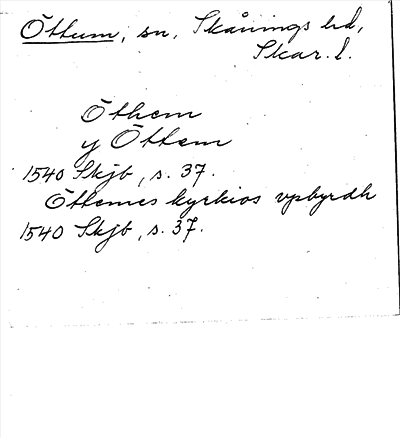 Öttum, sn, Skånings hd,
Skar. l.
Öthem
y Öttem
1540 Skjb, s. 37.
Öthemes kyrkios vpbyrdh
1540 Skjb, s. 37.